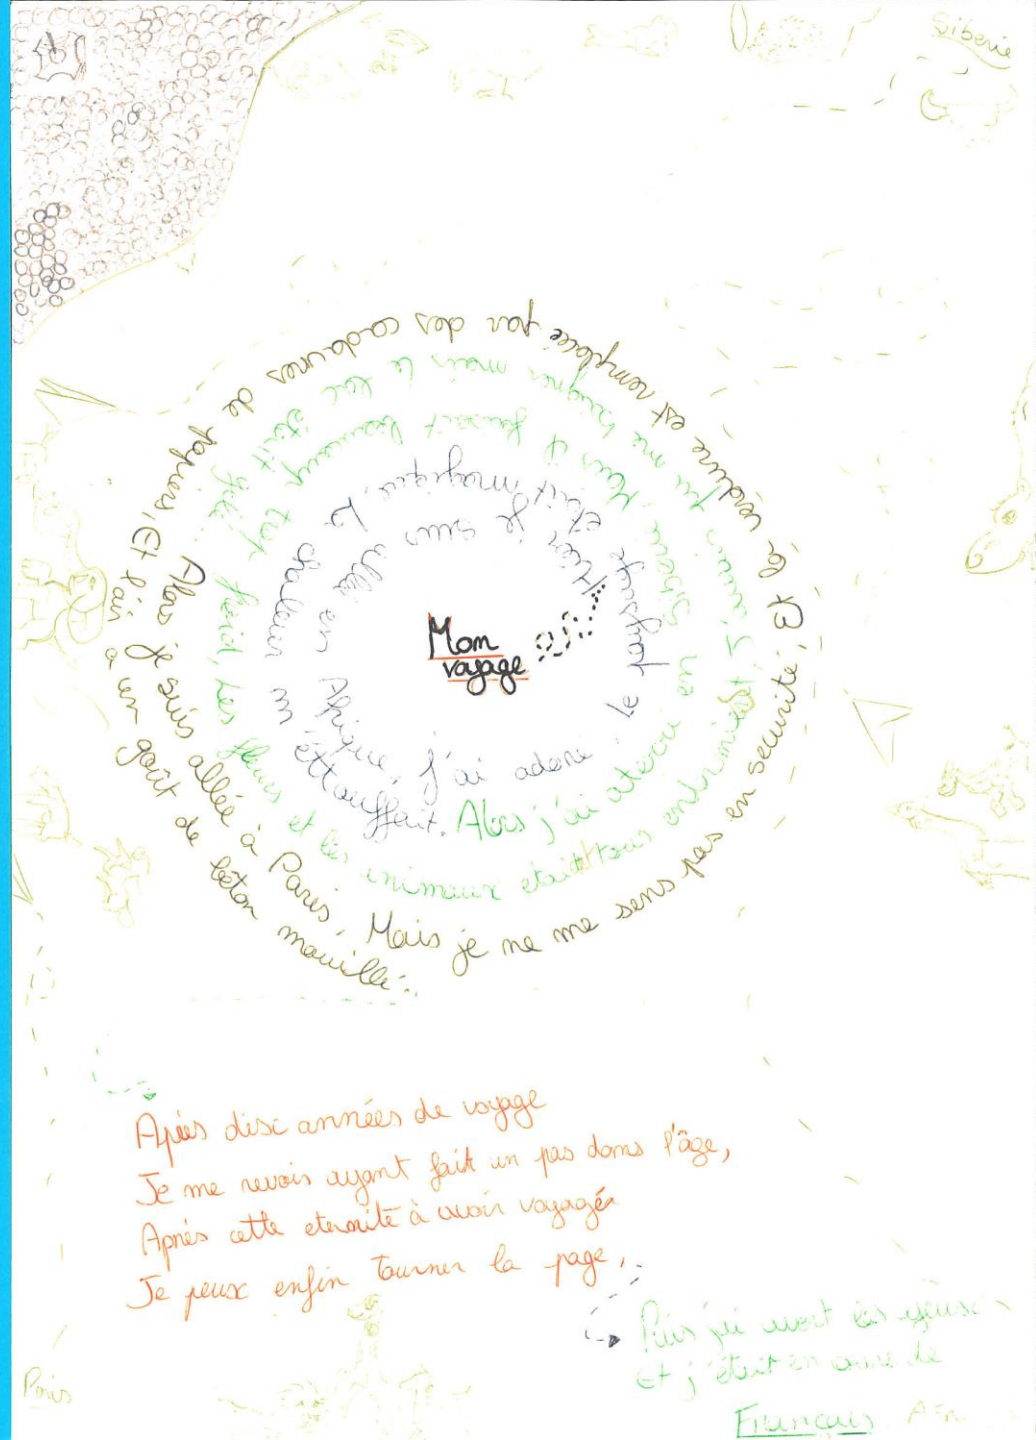 Siberie
Mon
voyage
Hier je suis allée en Afrique, j'ai adoré, le paysage était magique, la chaleur m'éttouffait.
Alors j'ai aterri en Siberie, Mais il faisait beaucoup trop froid, les fleurs et les animaux etait tous endormies et j'aurais pu me baigner mais le lac était gelé.
Alors je suis allée à Paris, Mais je ne me sens pas en securité, Et la verdure est remplacée par des cadavres de papiers, Et l'air a un goût de béton mouillé...
Après disc années de voyage
Je me revois ayant fait un pas dans l'âge,
Après cette eternité à avoir voyagér
Je peux enfin tourner la page,
Puis j'ai ouvert les yeux
Et j'étuit en cours de
Français
Paris